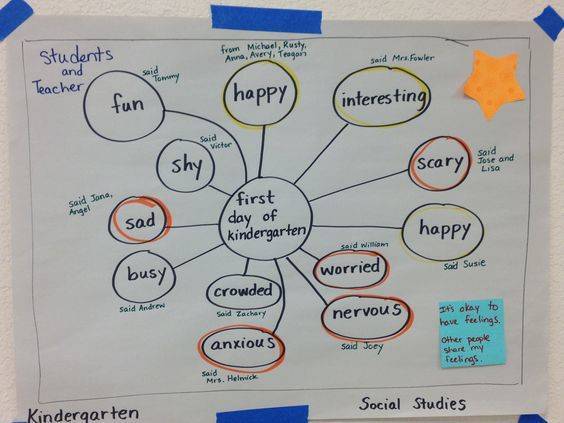 Students
and
Teacher
said
Tommy
fun
from Michael, Rusty,
Anna, Avery, Teagan
happy
said Mrs. Fowler
interesting
said
Victor
shy
scary
said
Jose and
Lisa
said Jana,
Angel
sad
first
day of
kindergarten
happy
said Susie
busy
said Andrew
crowded
said Zachary
said William
worried
nervous
said Joey
anxious
said
Mrs. Helmick
It's okay to
have feelings.
Other people
share my
feelings.
Kindergarten
Social Studies